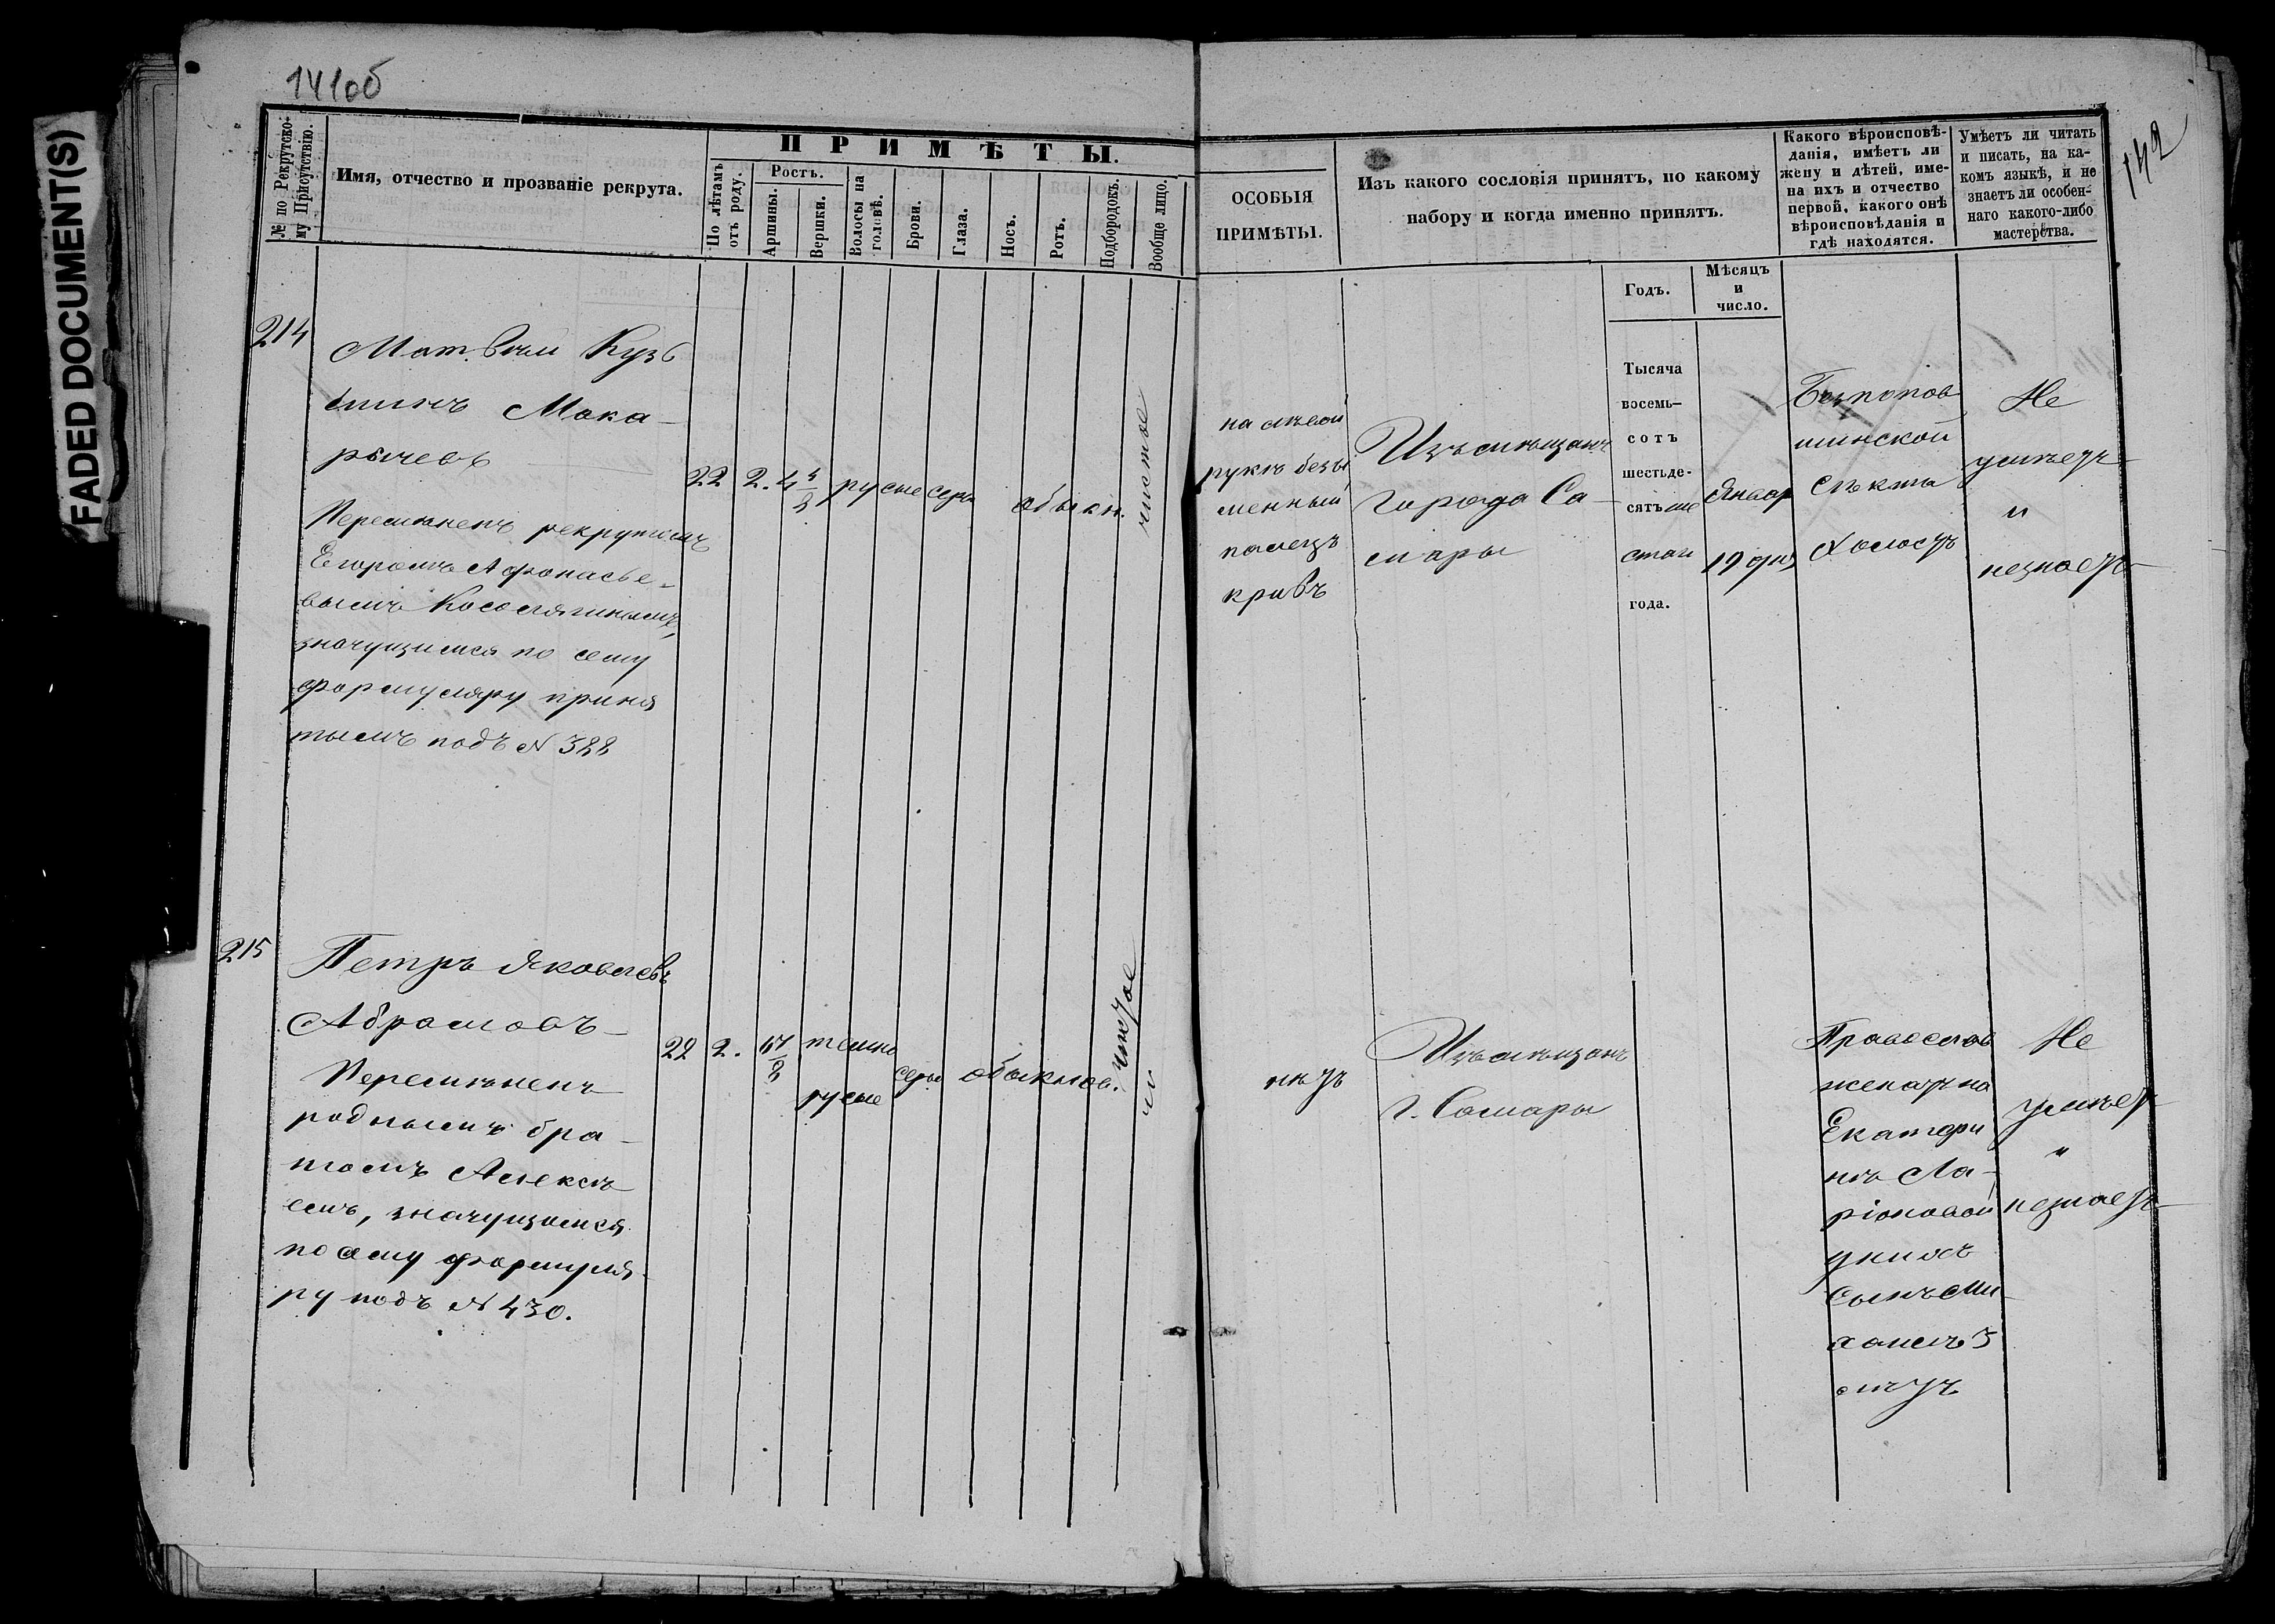 141об
FADED DOCUMENT(S)
№ по Рекрутско-
му Присутствію.
Имя, отчество и прозваніе рекрута.
ПРИМѢТЫ.
По лѣтамъ
отъ роду.
Ростъ.
Аршины.
Вершки.
Волосы на
головѣ.
Брови.
Глаза.
Носъ.
Ротъ.
Подбородокъ.
Вообще лицо.
214
Матвѣй Кузь
минъ Мака-
рычевъ
Перемѣненъ рекрутомъ
Егоромъ Афонасье-
вымъ Косолапинымъ,
значущимся по сему
формуляру приня
тымъ подъ № 388
22
2.
4
русые
серы
обыкн.
чистое
215
Петръ Яковлевъ
Абрамовъ
Перемѣненъ
роднымъ бра-
томъ Алексѣ
емъ, значущимся
по сему формуля-
ру подъ № 430.
22
2.
темно
русые
серы
обыкнов.
чистое
142
ОСОБЫЯ
ПРИМѢТЫ.
Изъ какого сословія принятъ, по какому
набору и когда именно принятъ.
Годъ.
Мѣсяцъ
и
число.
Какого вѣроисповѣ-
данія, имѣетъ ли
жену и дѣтей, име-
на ихъ и отчество
первой, какого онѣ
вѣроисповѣданія и
гдѣ находятся.
Умѣетъ ли читать
и писать, на ка-
комъ языкѣ, и не
знаетъ ли особен-
наго какого-либо
мастерства.
на лѣвой
рукѣ безы
менный
палецъ
кривъ
Изъ мѣщанъ
города Са-
мары
Тысяча
восемь-
сотъ
шестьде-
сятъ ше
стаго
года.
Январ
19 дня
Безпопов
шинской
секты
Холостъ
Не
умѣетъ
и
незнаетъ
нѣтъ
Изъ мѣщанъ
г. Самары
Православ
женатъ на
Екатери
нѣ Ла-
ріоновой
у нихъ
сынъ Ми-
хаилъ 3
лѣтъ
Не
умѣет
"
незнаетъ